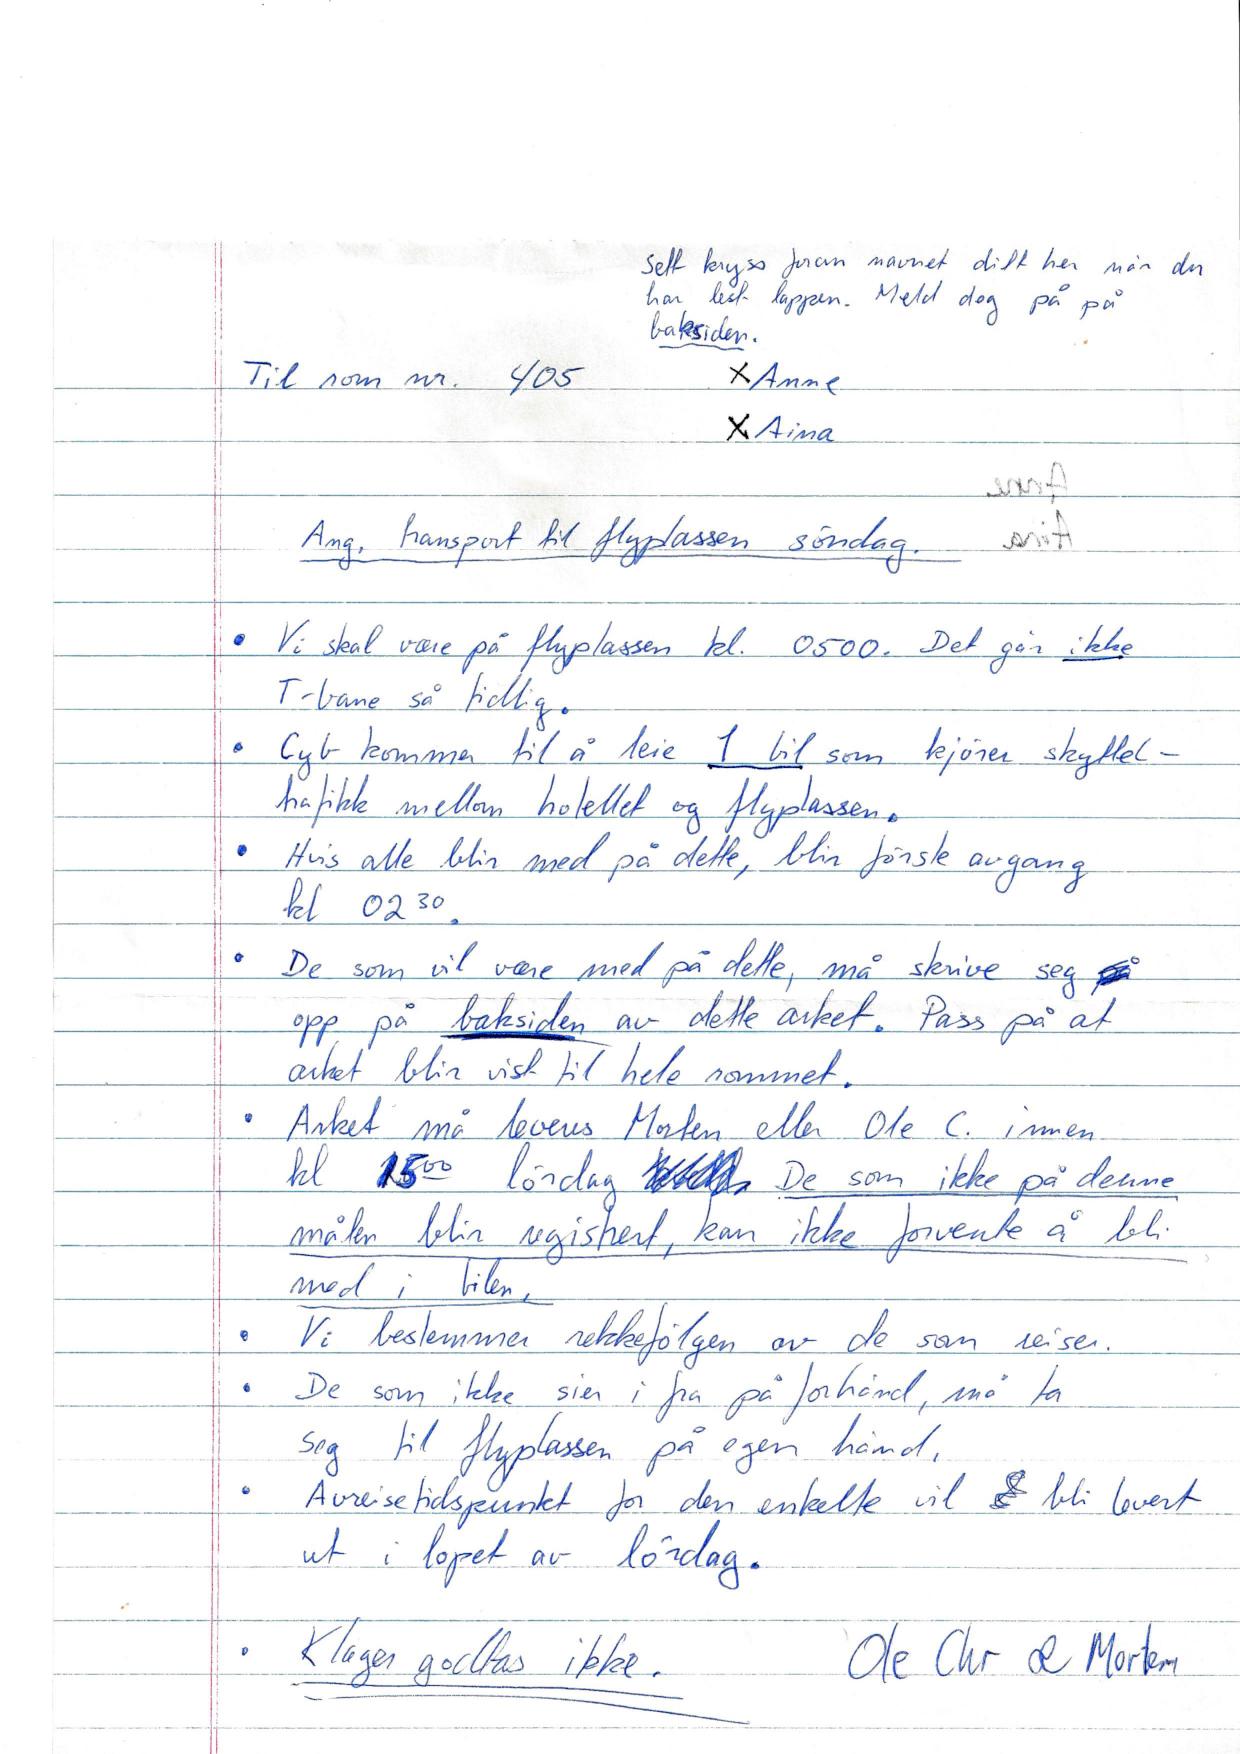 Sett kryss foran navnet ditt her når du
har lest lappen. Meld deg på på
baksiden.
Til rom nr. 405
X Anne
X Aina
Anne
Aina
Ang. transport til flyplassen söndag.
• Vi skal være på flyplassen kl. 0500. Det går ikke
T-bane så tidlig.
• Cyb kommer til å leie 1 bil som kjörer skyttel-
trafikk mellom hotellet og flyplassen.
• Hvis alle blir med på dette, blir förste avgang
kl 0230.
• De som vil være med på dette, må skrive seg
opp på baksiden av dette arket. Pass på at
arket blir vist til hele rommet.
• Arket må leveres Morten eller Ole C. innen
kl 1500 lördag De som ikke på denne
måten blir registrert, kan ikke forvente å bli
med i bilen.
• Vi bestemmer rekkefölgen av de som reiser.
• De som ikke sier i fra på forhånd, må ta
seg til flyplassen på egen hånd.
• Avreisetidspunkt for den enkelte vil bli levert
ut i lopet av lördag.
• Klager godtas ikke.
Ole Chr & Morten